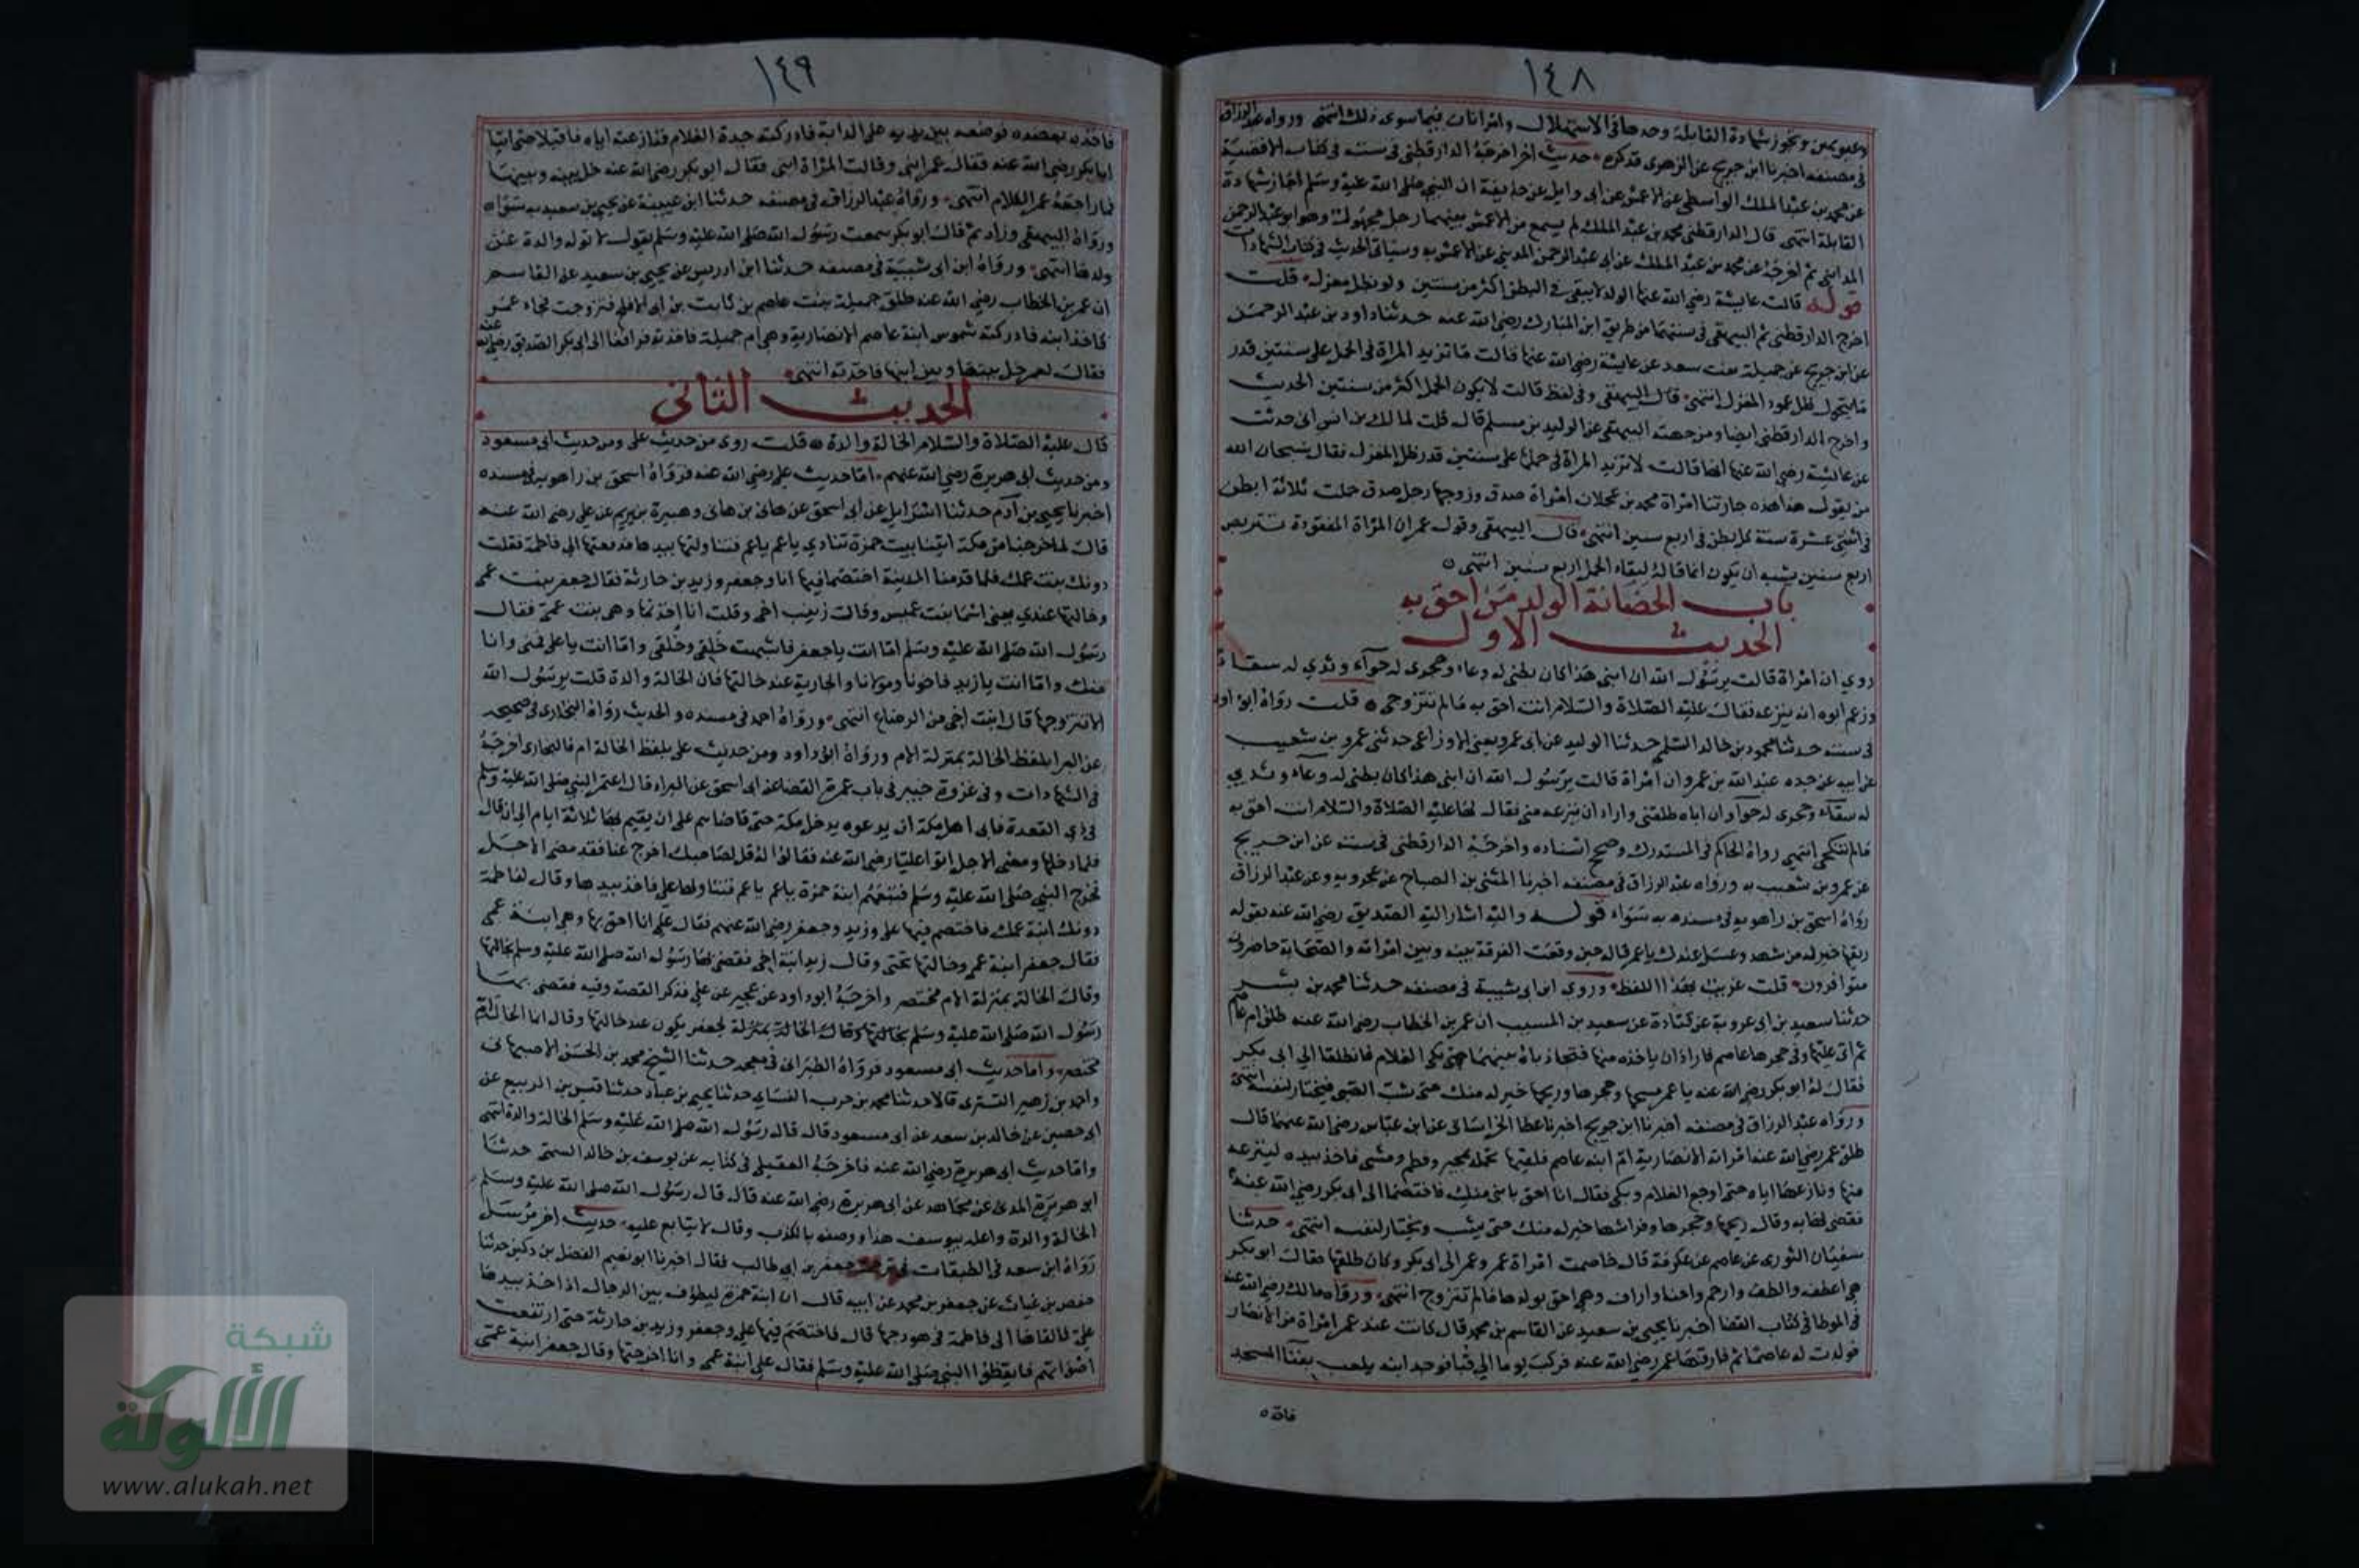 ١٤٨
وعيوبهن وتجوز شهادة القابلة وحدها في الاستهلال وامراتان فيما سوى ذلك انتهى ورواه عبد الرزاق
في مصنفه اخبرنا ابن جريج عن الزهري فذكره حديث اخر اخرجه الدارقطني في سننه في كتاب الاقضية
عن محمد بن عبد الملك الواسطي عن الاعمش عن ابي وايل عن حذيفة ان النبي صلى الله عليه وسلم اجاز شهادة
القابلة انتهى قال الدارقطني محمد بن عبد الملك لم يسمع من الاعمش بينهما رجل مجهول وهو ابو عبد الرحمن
المدايني ثم اخرجه عن محمد بن عبد الملك عن ابي عبد الرحمن المديني عن الاعمش به وسياتي الحديث في كتاب الشهادات
قوله قالت عايشة رضي الله عنها الولد لا يبقى في البطن اكثر من سنتين ولو بظل مغزل قلت
اخرج الدارقطني ثم البيهقي في سننهما من طريق ابن المبارك رضي الله عنه حدثنا داود بن عبد الرحمن
عن ابن جريج عن جميلة بنت سعد عن عايشة رضي الله عنها قالت ما تزيد المراة في الحمل على سنتين قدر
ما يتحول ظل عمود المغزل انتهى قال البيهقي وفي لفظ قالت لا يكون الحمل اكثر من سنتين الحديث
واخرج الدارقطني ايضا ومن جهته البيهقي عن الوليد بن مسلم قال قلت لمالك بن انس اني حدثت
عن عائشة رضي الله عنها انها قالت لا تزيد المراة في حملها على سنتين قدر ظل المغزل فقال سبحان الله
من يقول هذا هذه جارتنا امراة محمد بن عجلان امراة صدق وزوجها رجل صدق حملت ثلاثة ابطن
في اثنتي عشرة سنة كل بطن في اربع سنين انتهى قال البيهقي وقول عمر ان المراة المفقودة تتربص
اربع سنين يشبه ان يكون انما قاله لبقاء الحمل اربع سنين انتهى
باب الحضانة الولد من احق به
الحديث الاول
روي ان امراة قالت يرسول الله ان ابني هذا كان بطني له وعاء وحجري له حواء وثدي له سقاء
وزعم ابوه انه ينزعه فقال عليه الصلاة والسلام انت احق به مالم تتزوجي قلت رواه ابو داود
في سننه حدثنا محمود بن خالد السلمي حدثنا الوليد عن ابي عمرو يعني الاوزاعي حدثني عمرو بن شعيب
عن ابيه عن جده عبد الله بن عمرو ان امراة قالت يرسول الله ان ابني هذا كان بطني له وعاء وثديي
له سقاء وحجري له حواء وان اباه طلقني واراد ان ينزعه مني فقال لها عليه الصلاة والسلام انت احق به
مالم تنكحي انتهى رواه الحاكم في المستدرك وصحح اسناده واخرجه الدارقطني في سننه عن ابن جريج
عن عمرو بن شعيب به ورواه عبد الرزاق في مصنفه اخبرنا المثنى بن الصباح عن عمرو به وعن عبد الرزاق
رواه اسحق بن راهويه في مسنده به سواء قوله واليه اشار اليه الصديق رضي الله عنه بقوله
ريقها خير له من شهد وعسل عندك يا عمر قاله حين وقعت الفرقة بينه وبين امراته والصحابة حاضرون
متوافرون قلت غريب بهذا اللفظ وروى ابن ابي شيبة في مصنفه حدثنا محمد بن بشر
حدثنا سعيد بن ابي عروبة عن قتادة عن سعيد بن المسيب ان عمر بن الخطاب رضي الله عنه طلق ام عاصم
ثم اتى عليها وفي حجرها عاصم فاراد ان ياخذه منها فتجاذباه بينهما حتى بكى الغلام فانطلقا الى ابي بكر
فقال له ابو بكر رضي الله عنه يا عمر مسحها وحجرها وريحها خير له منك حتى يشب الصبي فيختار لنفسه انتهى
ورواه عبد الرزاق في مصنفه اخبرنا ابن جريج اخبرنا عطا الخراساني عن ابن عباس رضي الله عنهما قال
طلق عمر رضي الله عنه امراته الانصارية ام ابنه عاصم فلقيها تحمله بمحسر وفطم ومشى فاخذ بيده لينزعه
منها ونازعها اياه حتى اوجع الغلام وبكى فقال انا احق بابني منك فاختصما الى ابي بكر رضي الله عنه
فقضى لها به وقال ريحها وحجرها وفراشها خير له منك حتى يشب ويختار لنفسه انتهى حدثنا
سفيان الثوري عن عاصم عن عكرمة قال خاصمت امراة عمر عمر الى ابي بكر وكان طلقها فقال ابو بكر
هي اعطف والطف وارحم واحنا واراف وهي احق بولدها مالم تتزوج انتهى ورواه مالك رضي الله عنه
في الموطا في كتاب القضا اخبرنا يحيى بن سعيد عن القاسم بن محمد قال كانت عند عمر امراة من الانصار
فولدت له عاصما ثم فارقها عمر رضي الله عنه فركب يوما الى قبا فوجد ابنه يلعب بفنا المسجد
فاخذه
١٤٩
فاخذه بعضده فوضعه بين يديه على الدابة فادركته جدة الغلام فنازعته اياه فاقبلا حتى اتيا
ابا بكر رضي الله عنه فقال عمر ابني وقالت المراة ابني فقال ابو بكر رضي الله عنه خل بينه وبينها
فما راجعه عمر الكلام انتهى ورواه عبد الرزاق في مصنفه حدثنا ابن عيينة عن يحيى بن سعيد به سواء
ورواه البيهقي وزاد ثم قال ابو بكر سمعت رسول الله صلى الله عليه وسلم يقول لا توله والدة عن
ولدها انتهى ورواه ابن ابي شيبة في مصنفه حدثنا ابن ادريس عن يحيى بن سعيد عن القاسم
ان عمر بن الخطاب رضي الله عنه طلق جميلة بنت عاصم بن ثابت بن ابي الافلح فتزوجت فجاء عمر
فاخذ ابنه فادركته شموس ابنة عاصم الانصارية وهي ام جميلة فاخذته فترافعا الى ابي بكر الصديق رضي الله عنه
فقال لعمر خل بينها وبين ابنها فاخذته انتهى
الحديث الثاني
قال عليه الصلاة والسلام الخالة والدة قلت روي من حديث علي ومن حديث ابي مسعود
ومن حديث ابي هريرة رضي الله عنهم اما حديث علي رضي الله عنه فرواه اسحق بن راهويه في مسنده
اخبرنا يحيى بن آدم حدثنا اسرايل عن ابي اسحق عن هانئ بن هانئ وهبيرة بن يريم عن علي رضي الله عنه
قال لما خرجنا من مكة اتبتنا بيت حمزة تنادي يا عم يا عم فتناولتها بيدها فدفعتها الى فاطمة فقلت
دونك بنت عمك فلما قدمنا المدينة اختصما فيها انا وجعفر وزيد بن حارثة فقال جعفر بنت عمي
وخالتها عندي يعني اسما بنت عميس وقالت زينب اخي وقلت انا اخذتها وهي بنت عمي فقال
رسول الله صلى الله عليه وسلم اما انت يا جعفر فاشبهت خلقي وخلقي واما انت يا علي فمني وانا
منك واما انت يا زيد فاخونا ومولانا والجارية عند خالتها فان الخالة والدة قلت يرسول الله
الا تتزوجها قال ابنت اخي من الرضاع انتهى ورواه احمد في مسنده والحديث رواه البخاري في صحيحه
عن البرا بلفظ الخالة بمنزلة الام ورواه ابو داود ومن حديث علي بلفظ الخالة ام فالبخاري اخرجه
في الشهادات وفي غزوة خيبر في باب عمرة القضا عن ابي اسحق عن البراء قال اعتمر النبي صلى الله عليه وسلم
في ذي القعدة فابى اهل مكة ان يدعوه يدخل مكة حتى قاضاهم على ان يقيم بها ثلاثة ايام الى ان قال
فلما دخلها ومضى الاجل اتوا عليا رضي الله عنه فقالوا له قل لصاحبك اخرج عنا فقد مضى الاجل
فخرج النبي صلى الله عليه وسلم فتبعتهم ابنة حمزة يا عم يا عم فتناولها علي فاخذ بيدها وقال لفاطمة
دونك ابنة عمك فاختصم فيها علي وزيد وجعفر رضي الله عنهم فقال علي انا احق بها وهي ابنة عمي
فقال جعفر ابنة عمي وخالتها تحتي وقال زيد ابنة اخي فقضى بها رسول الله صلى الله عليه وسلم لخالتها
وقال الخالة بمنزلة الام مختصر واخرجه ابو داود عن عجير عن علي فذكر القصة وفيه فقضى بها
رسول الله صلى الله عليه وسلم لخالتها وقال الخالة بمنزلة لجعفر يكون عند خالتها وقال انما الخالة ام
مختصر واما حديث ابي مسعود فرواه الطبراني في معجمه حدثنا الشيخ محمد بن الحسن الاصبهاني
واحمد بن زهير التستري قالا حدثنا محمد بن حرب النساي حدثنا يحيى بن عباد حدثنا قيس بن الربيع عن
ابي حصين عن خالد بن سعد عن ابي مسعود قال قال رسول الله صلى الله عليه وسلم الخالة والدة انتهى
واما حديث ابي هريرة رضي الله عنه فاخرجه العقيلي في كتابه عن يوسف بن خالد السمتي حدثنا
ابو هريرة المدني عن مجاهد عن ابي هريرة رضي الله عنه قال قال رسول الله صلى الله عليه وسلم
الخالة والدة واعله بيوسف هذا ووصفه بالكذب وقال لا يتابع عليه حديث اخر مرسل
رواه ابن سعد في الطبقات في ترجمة جعفر بن ابي طالب فقال اخبرنا ابو نعيم الفضل بن دكين حدثنا
حفص بن غياث عن جعفر بن محمد عن ابيه قال ان ابنة حمزة ليطوف بين الرجال اذ اخذ بيدها
علي فالقاها الى فاطمة في هودجها قال فاختصم فيها علي وجعفر وزيد بن حارثة حتى ارتفعت
اصواتهم فايقظوا النبي صلى الله عليه وسلم فقال علي ابنة عمي وانا اخرجتها وقال جعفر ابنة عمي
شبكة
الألوكة
www.alukah.net